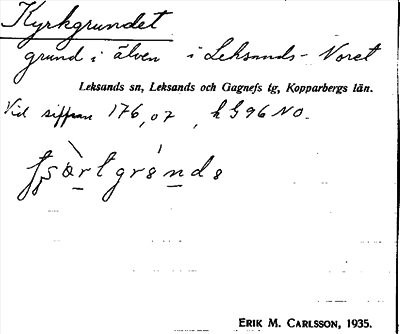 Kyrkgrundet
grund i älven i Leksands-Noret
Leksands sn, Leksands och Gagnefs tg, Kopparbergs län.
Vid siffran 176,07, k G96 NO.
ERIK M. CARLSSON, 1935.